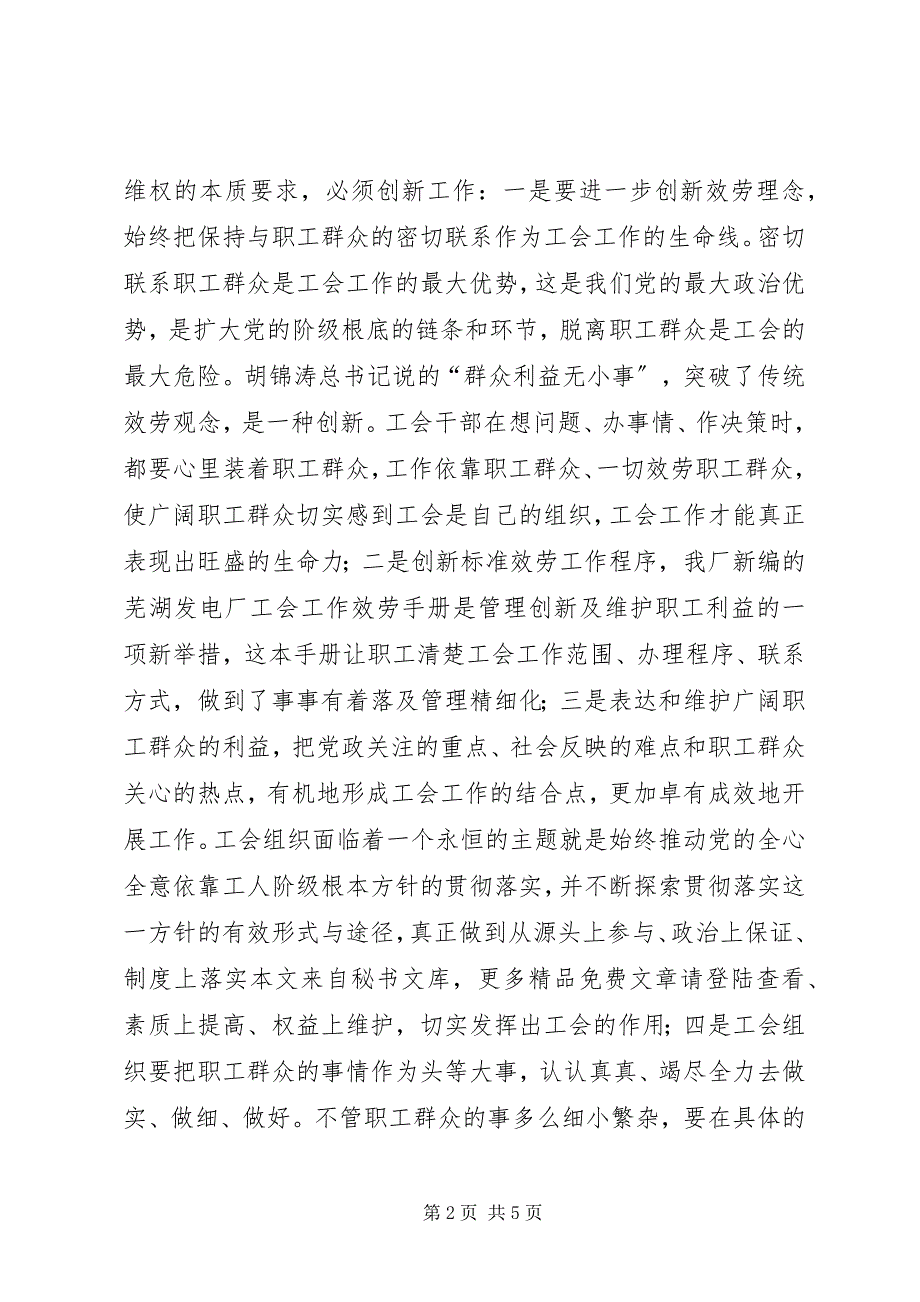 维权的本质要求，必须创新工作：一是要进一步创新效劳理念，
始终把保持与职工群众的密切联系作为工会工作的生命线。密切
联系职工群众是工会工作的最大优势，这是我们党的最大政治优
势，是扩大党的阶级根底的链条和环节，脱离职工群众是工会的
最大危险。胡锦涛总书记说的“群众利益无小事〞，突破了传统
效劳观念，是一种创新。工会干部在想问题、办事情、作决策时，
都要心里装着职工群众，工作依靠职工群众、一切效劳职工群众，
使广阔职工群众切实感到工会是自己的组织，工会工作才能真正
表现出旺盛的生命力；二是创新标准效劳工作程序，我厂新编的
芜湖发电厂工会工作效劳手册是管理创新及维护职工利益的一
项新举措，这本手册让职工清楚工会工作范围、办理程序、联系
方式，做到了事事有着落及管理精细化；三是表达和维护广阔职
工群众的利益，把党政关注的重点、社会反映的难点和职工群众
关心的热点，有机地形成工会工作的结合点，更加卓有成效地开
展工作。工会组织面临着一个永恒的主题就是始终推动党的全心
全意依靠工人阶级根本方针的贯彻落实，并不断探索贯彻落实这
一方针的有效形式与途径，真正做到从源头上参与、政治上保证、
制度上落实本文来自秘书文库，更多精品免费文章请登陆查看、
素质上提高、权益上维护，切实发挥出工会的作用；四是工会组
织要把职工群众的事情作为头等大事，认认真真、竭尽全力去做
实、做细、做好。不管职工群众的事多么细小繁杂，要在具体的
第 2 页 共 5 页